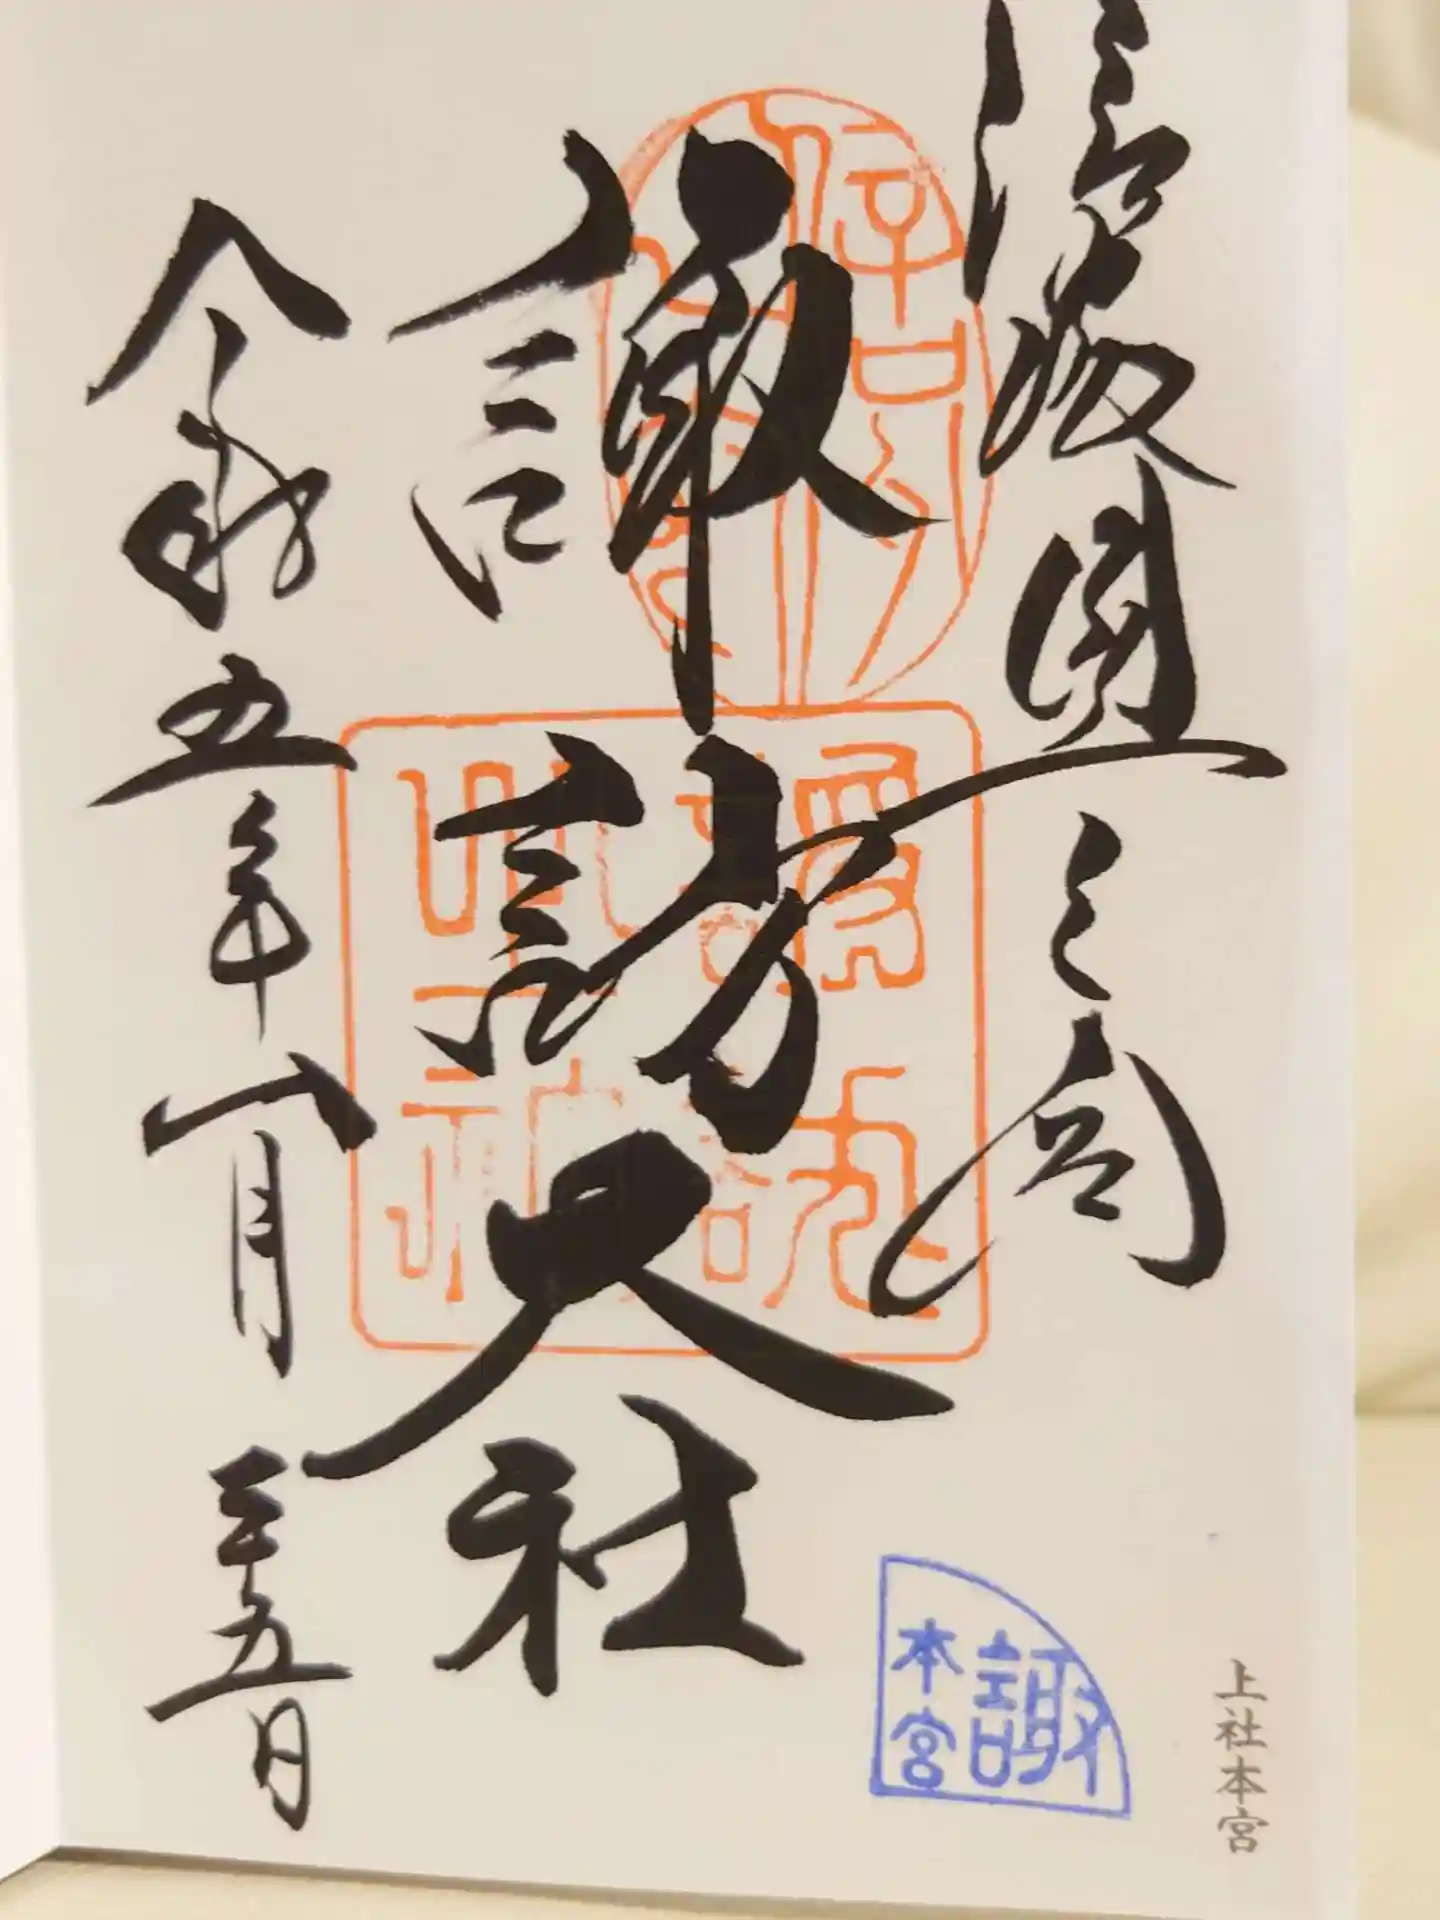 信濃國一之宮
諏訪大社
令和五年八月二十五日
諏
本宮
上社本宮